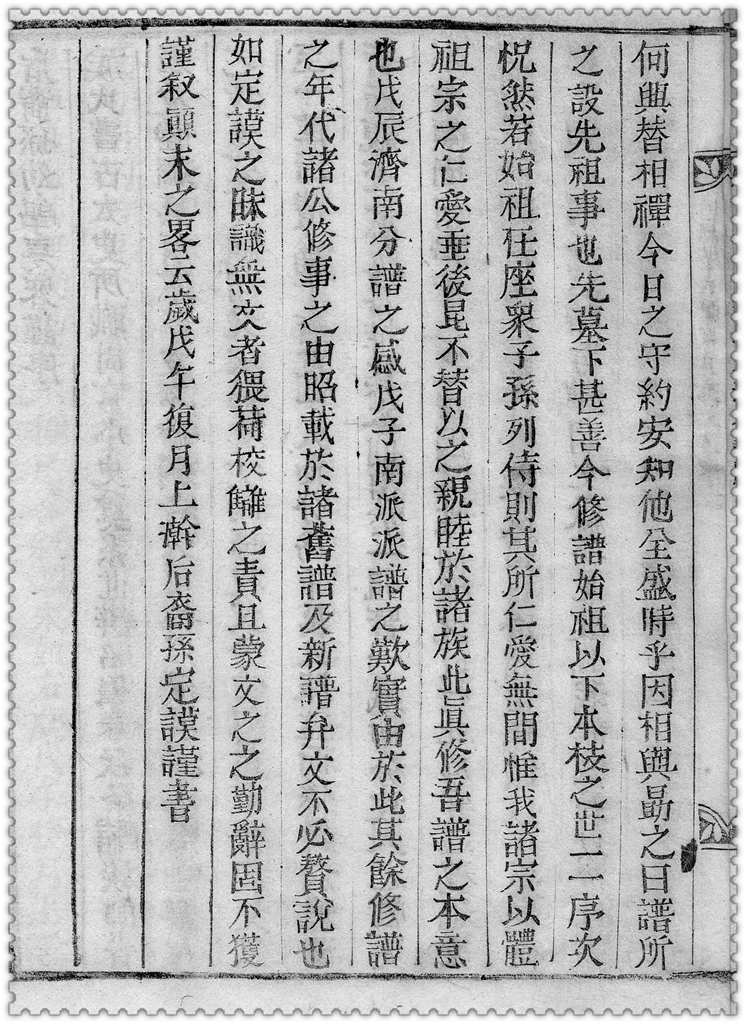 何興替相禪今日之守約安知他全盛時乎因相與勗之曰譜所
之設先祖事也先墓下甚善今修譜始祖以下本枝之世一一序次
怳然若始祖在座衆子孫列侍則其所仁愛無間惟我諸宗以體
祖宗之仁愛垂後昆不替以之親睦於諸族此眞修吾譜之本意
也戊辰濟南分譜之慼戊子南派派譜之歎實由於此其餘修譜
之年代諸公修事之由昭載於諸舊譜及新譜弁文不必贅說也
如定謨之昧識無文者猥荷校讎之責且蒙文之之勤辭固不獲
謹叙顚末之畧云歲戊午復月上澣后裔孫定謨謹書